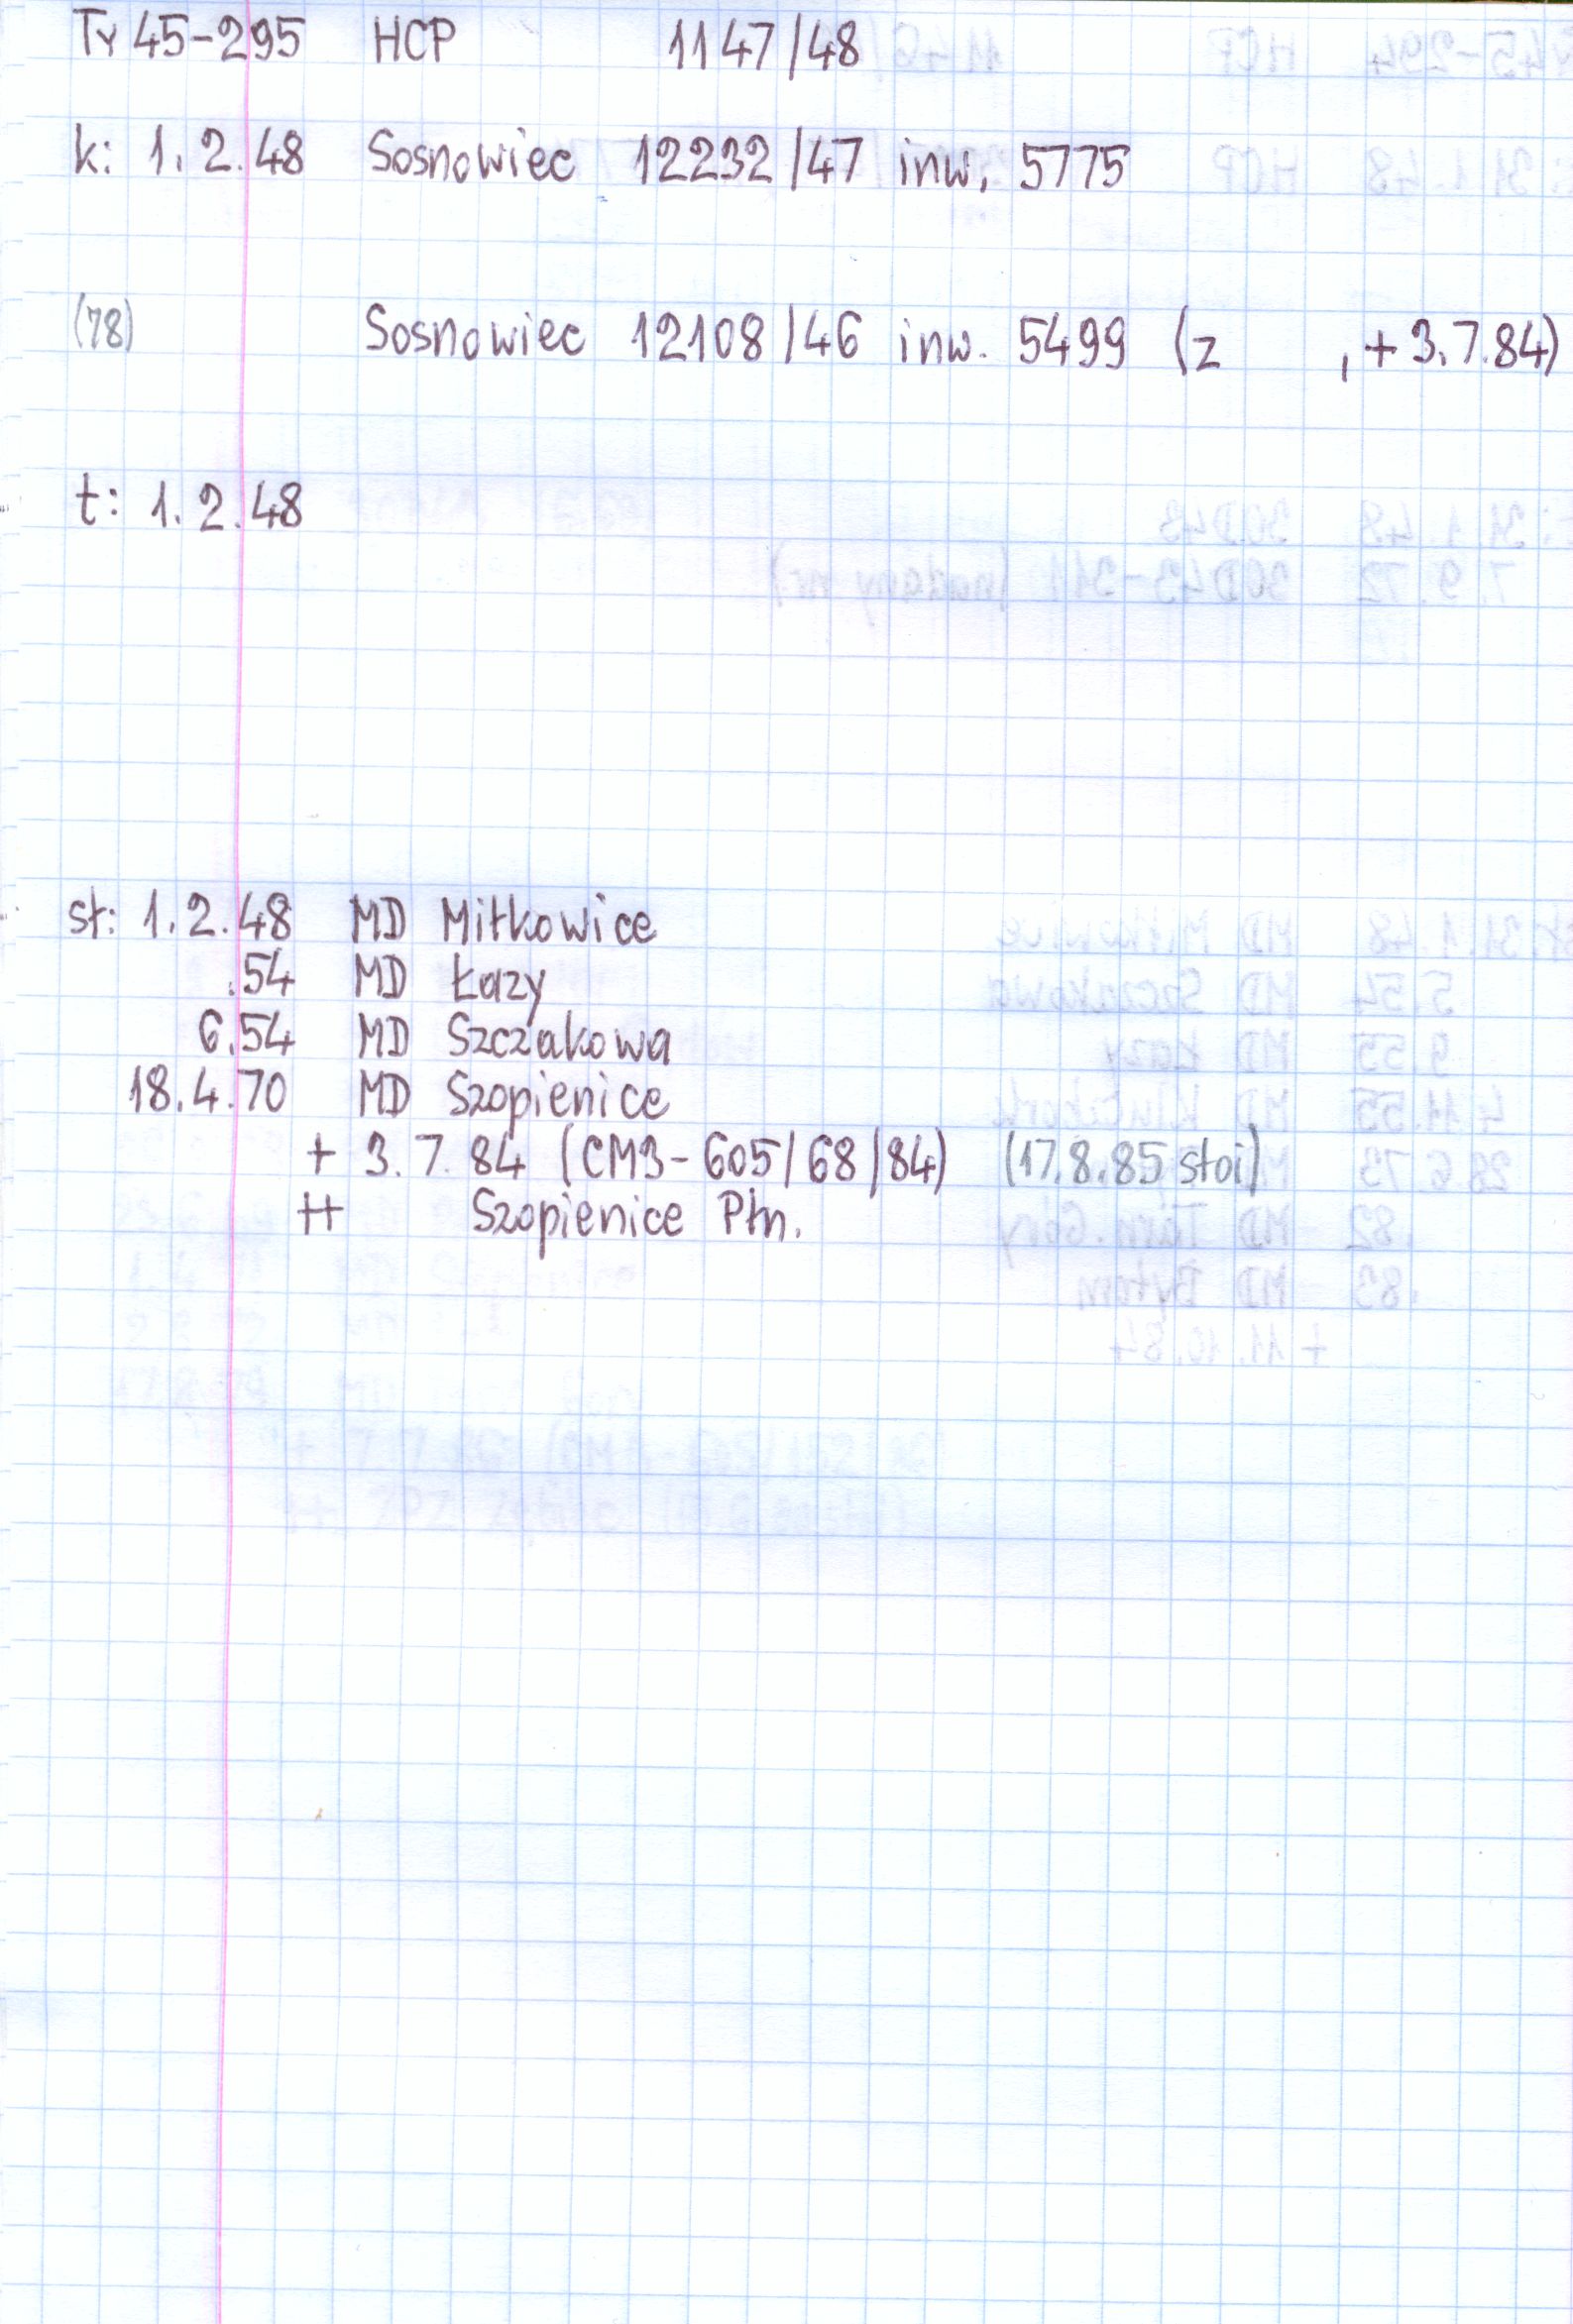 Ty 45-295 HCP 1147/48
k: 1.2.48 Sosnowiec 12232/47 inw. 5775
(78) Sosnowiec 12108/46 inw. 5499 (z , + 3.7.84)
t: 1.2.48
st: 1.2.48 MD Miłkowice
.54 MD Łazy
6.54 MD Szczakowa
18.4.70 MD Szopienice
+ 3.7.84 (CM3-605/68/84) (17.8.85 stoi)
++ Szopienice Płn.